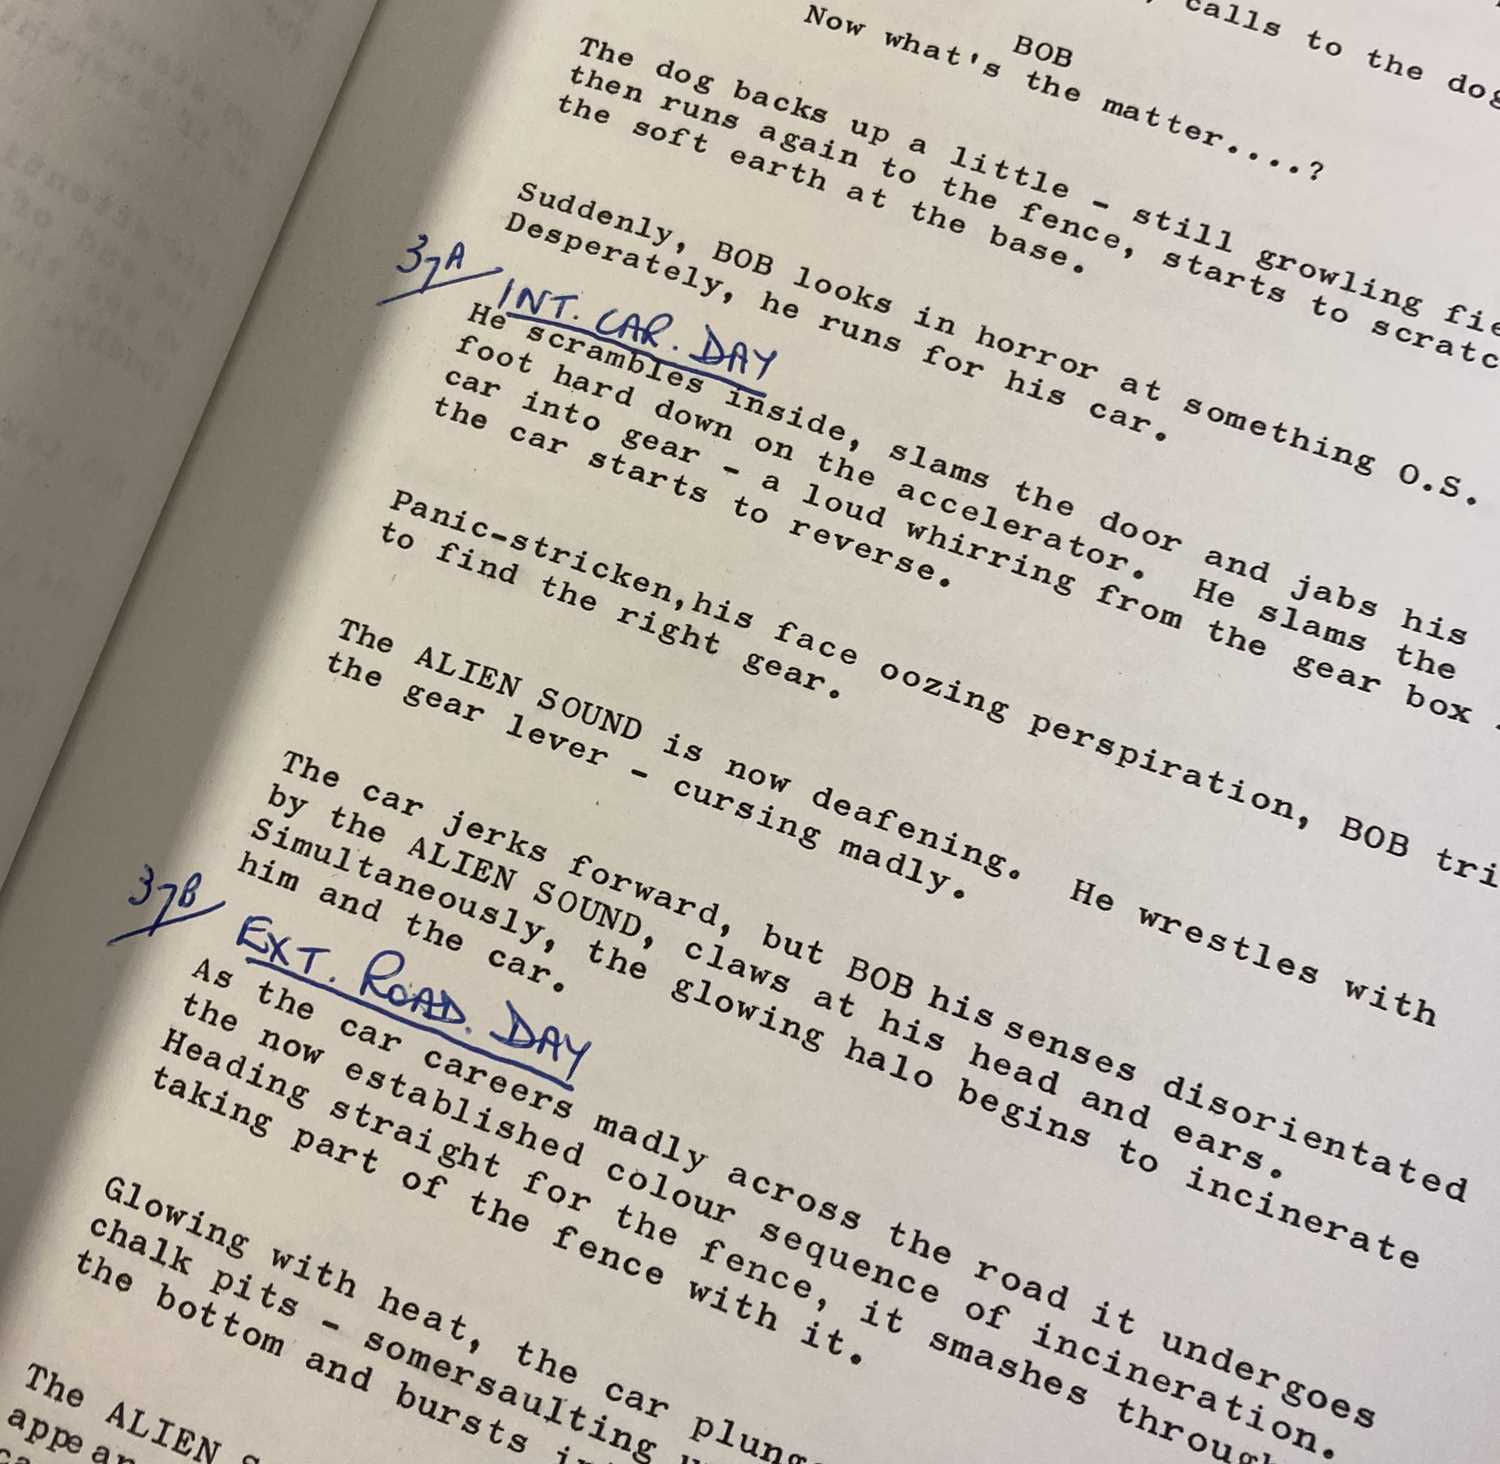 calls to the dog
BOB
Now what's the matter....?
The dog backs up a little - still growling fie
then runs again to the fence, starts to scratc
the soft earth at the base.
Suddenly, BOB looks in horror at something O.S.
Desperately, he runs for his car.
37A INT. CAR. DAY
He scrambles inside, slams the door and jabs his
foot hard down on the accelerator. He slams the
car into gear - a loud whirring from the gear box
the car starts to reverse.
Panic-stricken,his face oozing perspiration, BOB tri
to find the right gear.
The ALIEN SOUND is now deafening. He wrestles with
the gear lever - cursing madly.
The car jerks forward, but BOB his senses disorientated
by the ALIEN SOUND, claws at his head and ears.
Simultaneously, the glowing halo begins to incinerate
him and the car.
37B EXT. ROAD. DAY
As the car careers madly across the road it undergoes
the now established colour sequence of incineration.
Heading straight for the fence, it smashes through
taking part of the fence with it.
Glowing with heat, the car plung
chalk pits - somersaulting
the bottom and bursts
The ALIEN S
appear